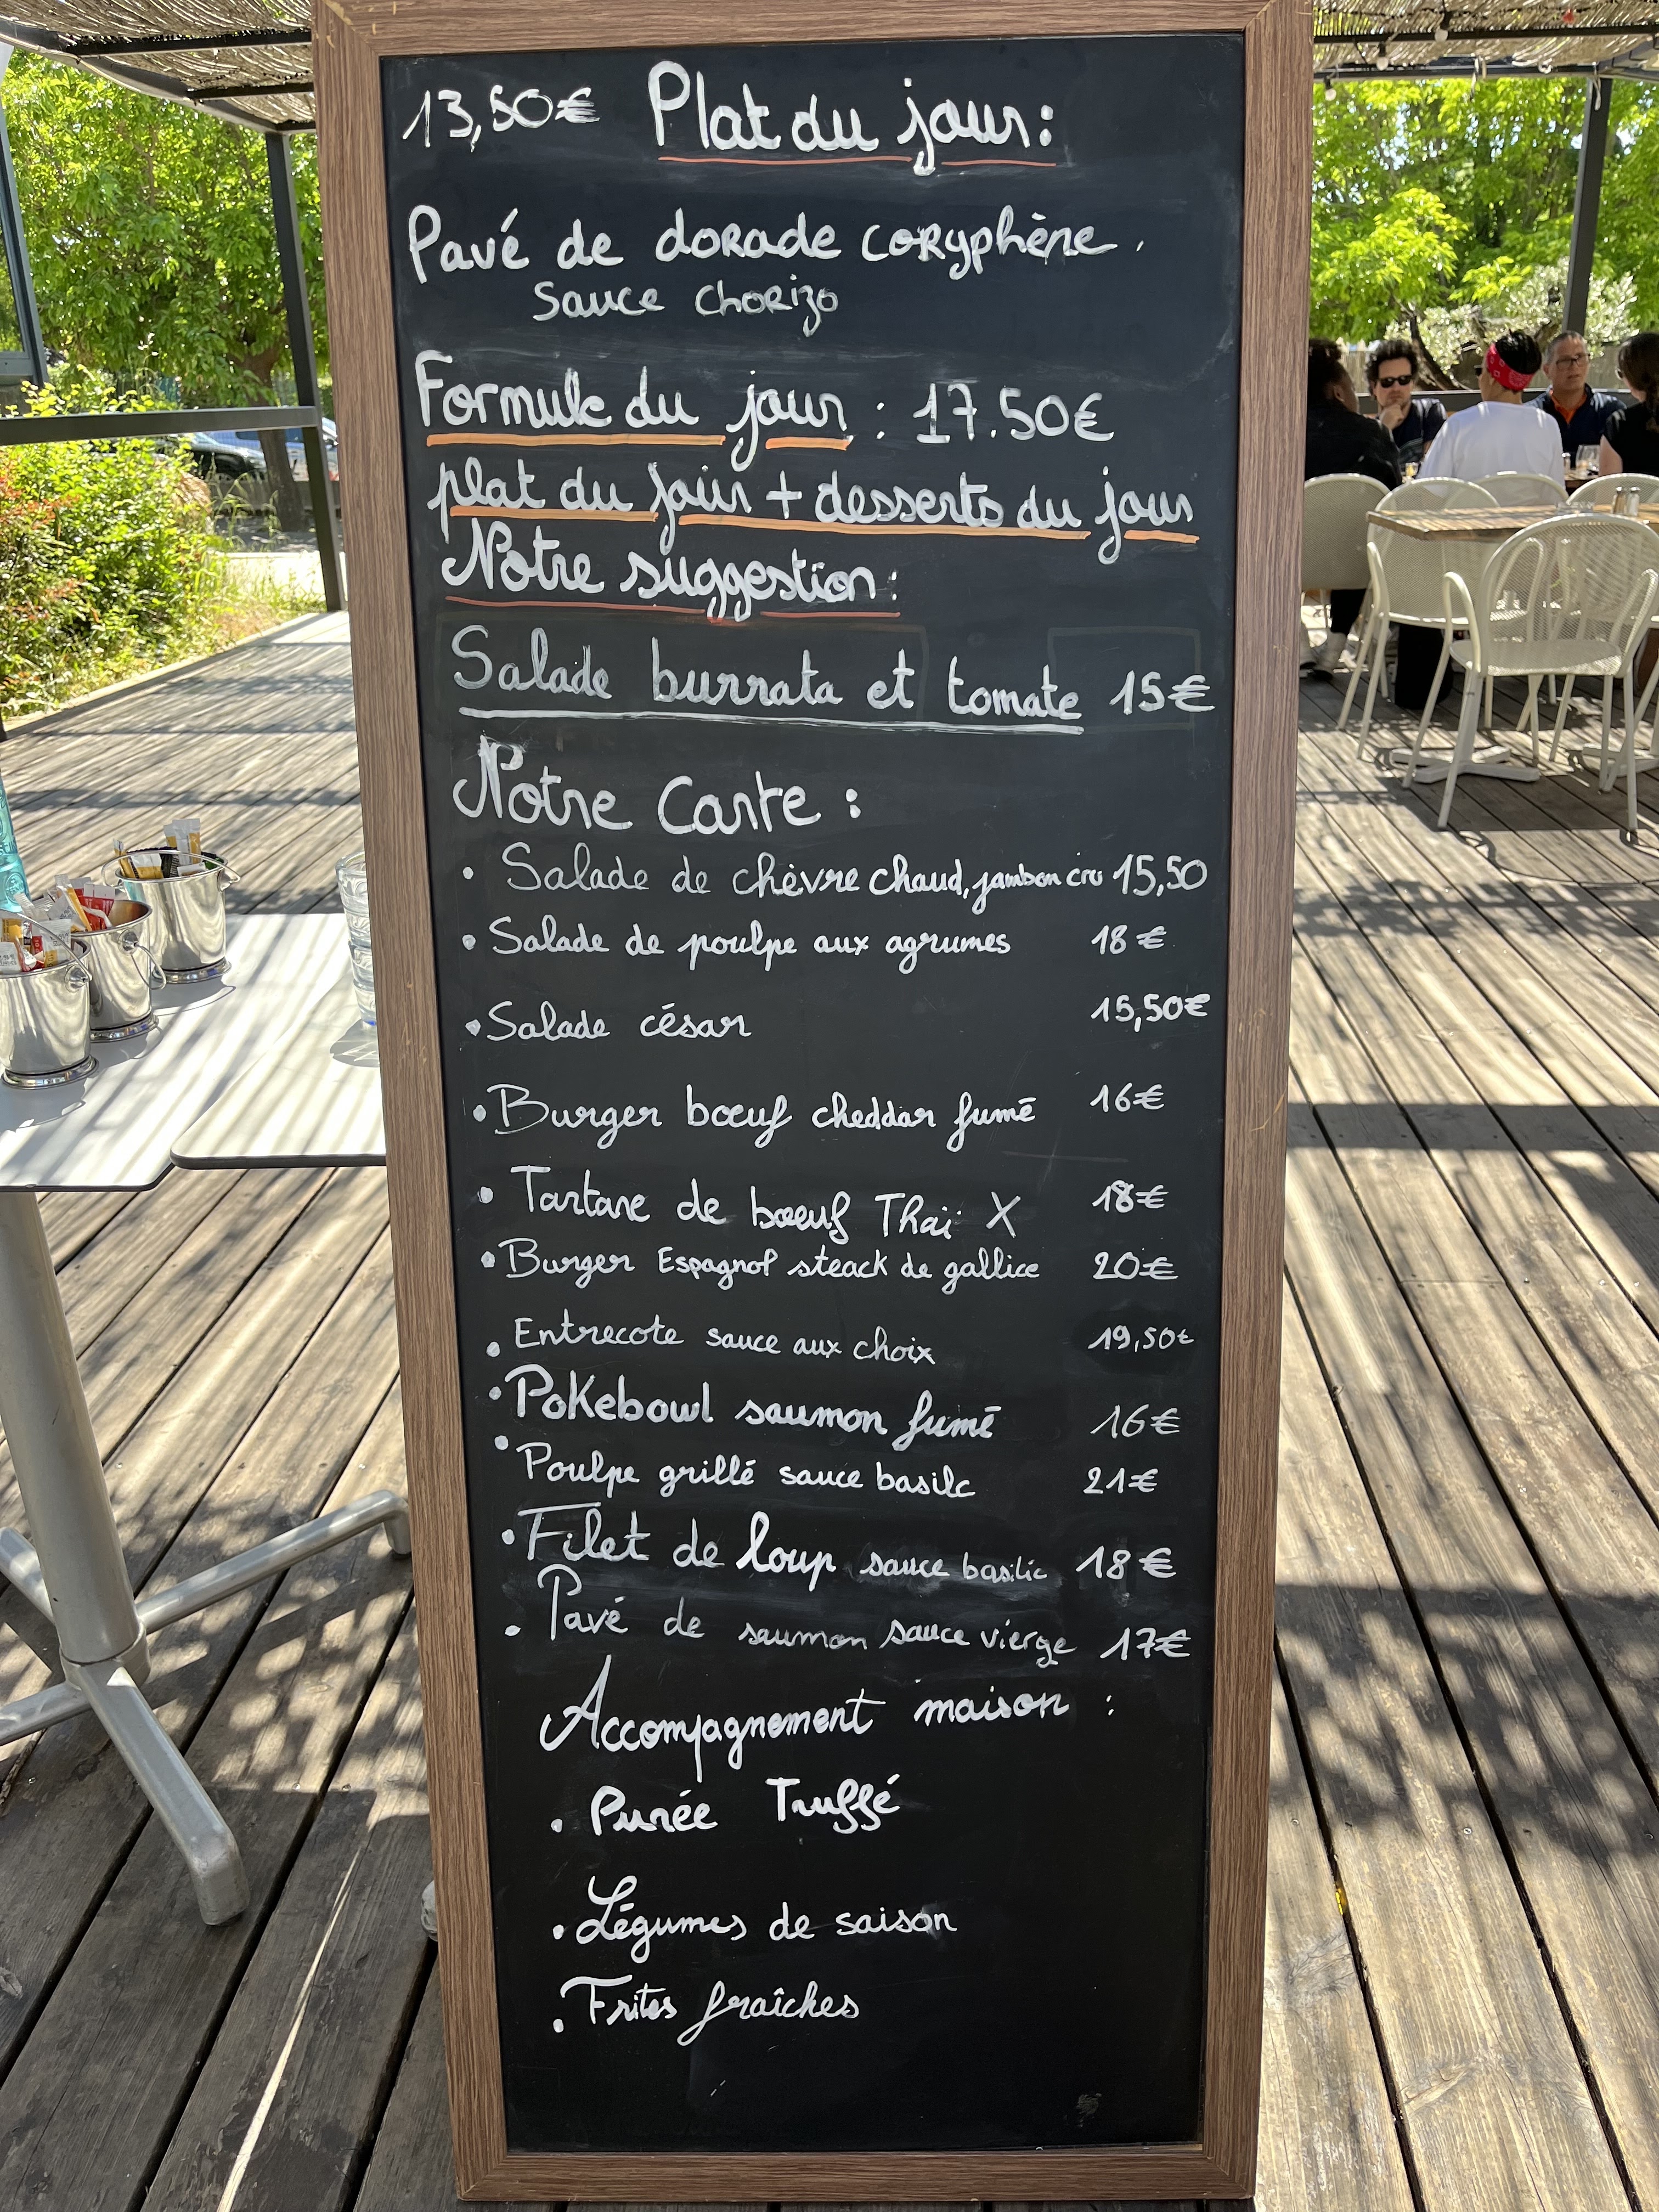 13,50€ Plat du jour:
Pavé de dorade coryphène.
Sauce Chorizo
Formule du jour : 17.50€
plat du jour + desserts du jour
Notre suggestion:
Salade burrata et tomate 15€
Notre Carte :
• Salade de chèvre chaud, jambon cru 15,50
• Salade de poulpe aux agrumes 18€
• Salade césar 15,50€
• Burger bœuf cheddar fumé 16€
• Tartare de bœuf Thaï X 18€
• Burger Espagnol steack de gallice 20€
• Entrecote sauce aux choix 19,50€
• Pokebowl saumon fumé 16€
• Poulpe grillé sauce basilc 21€
• Filet de loup sauce basilic 18€
• Pavé de saumon sauce vierge 17€
Accompagnement maison :
• Purée Truffé
• Légumes de saison
• Frites fraîches